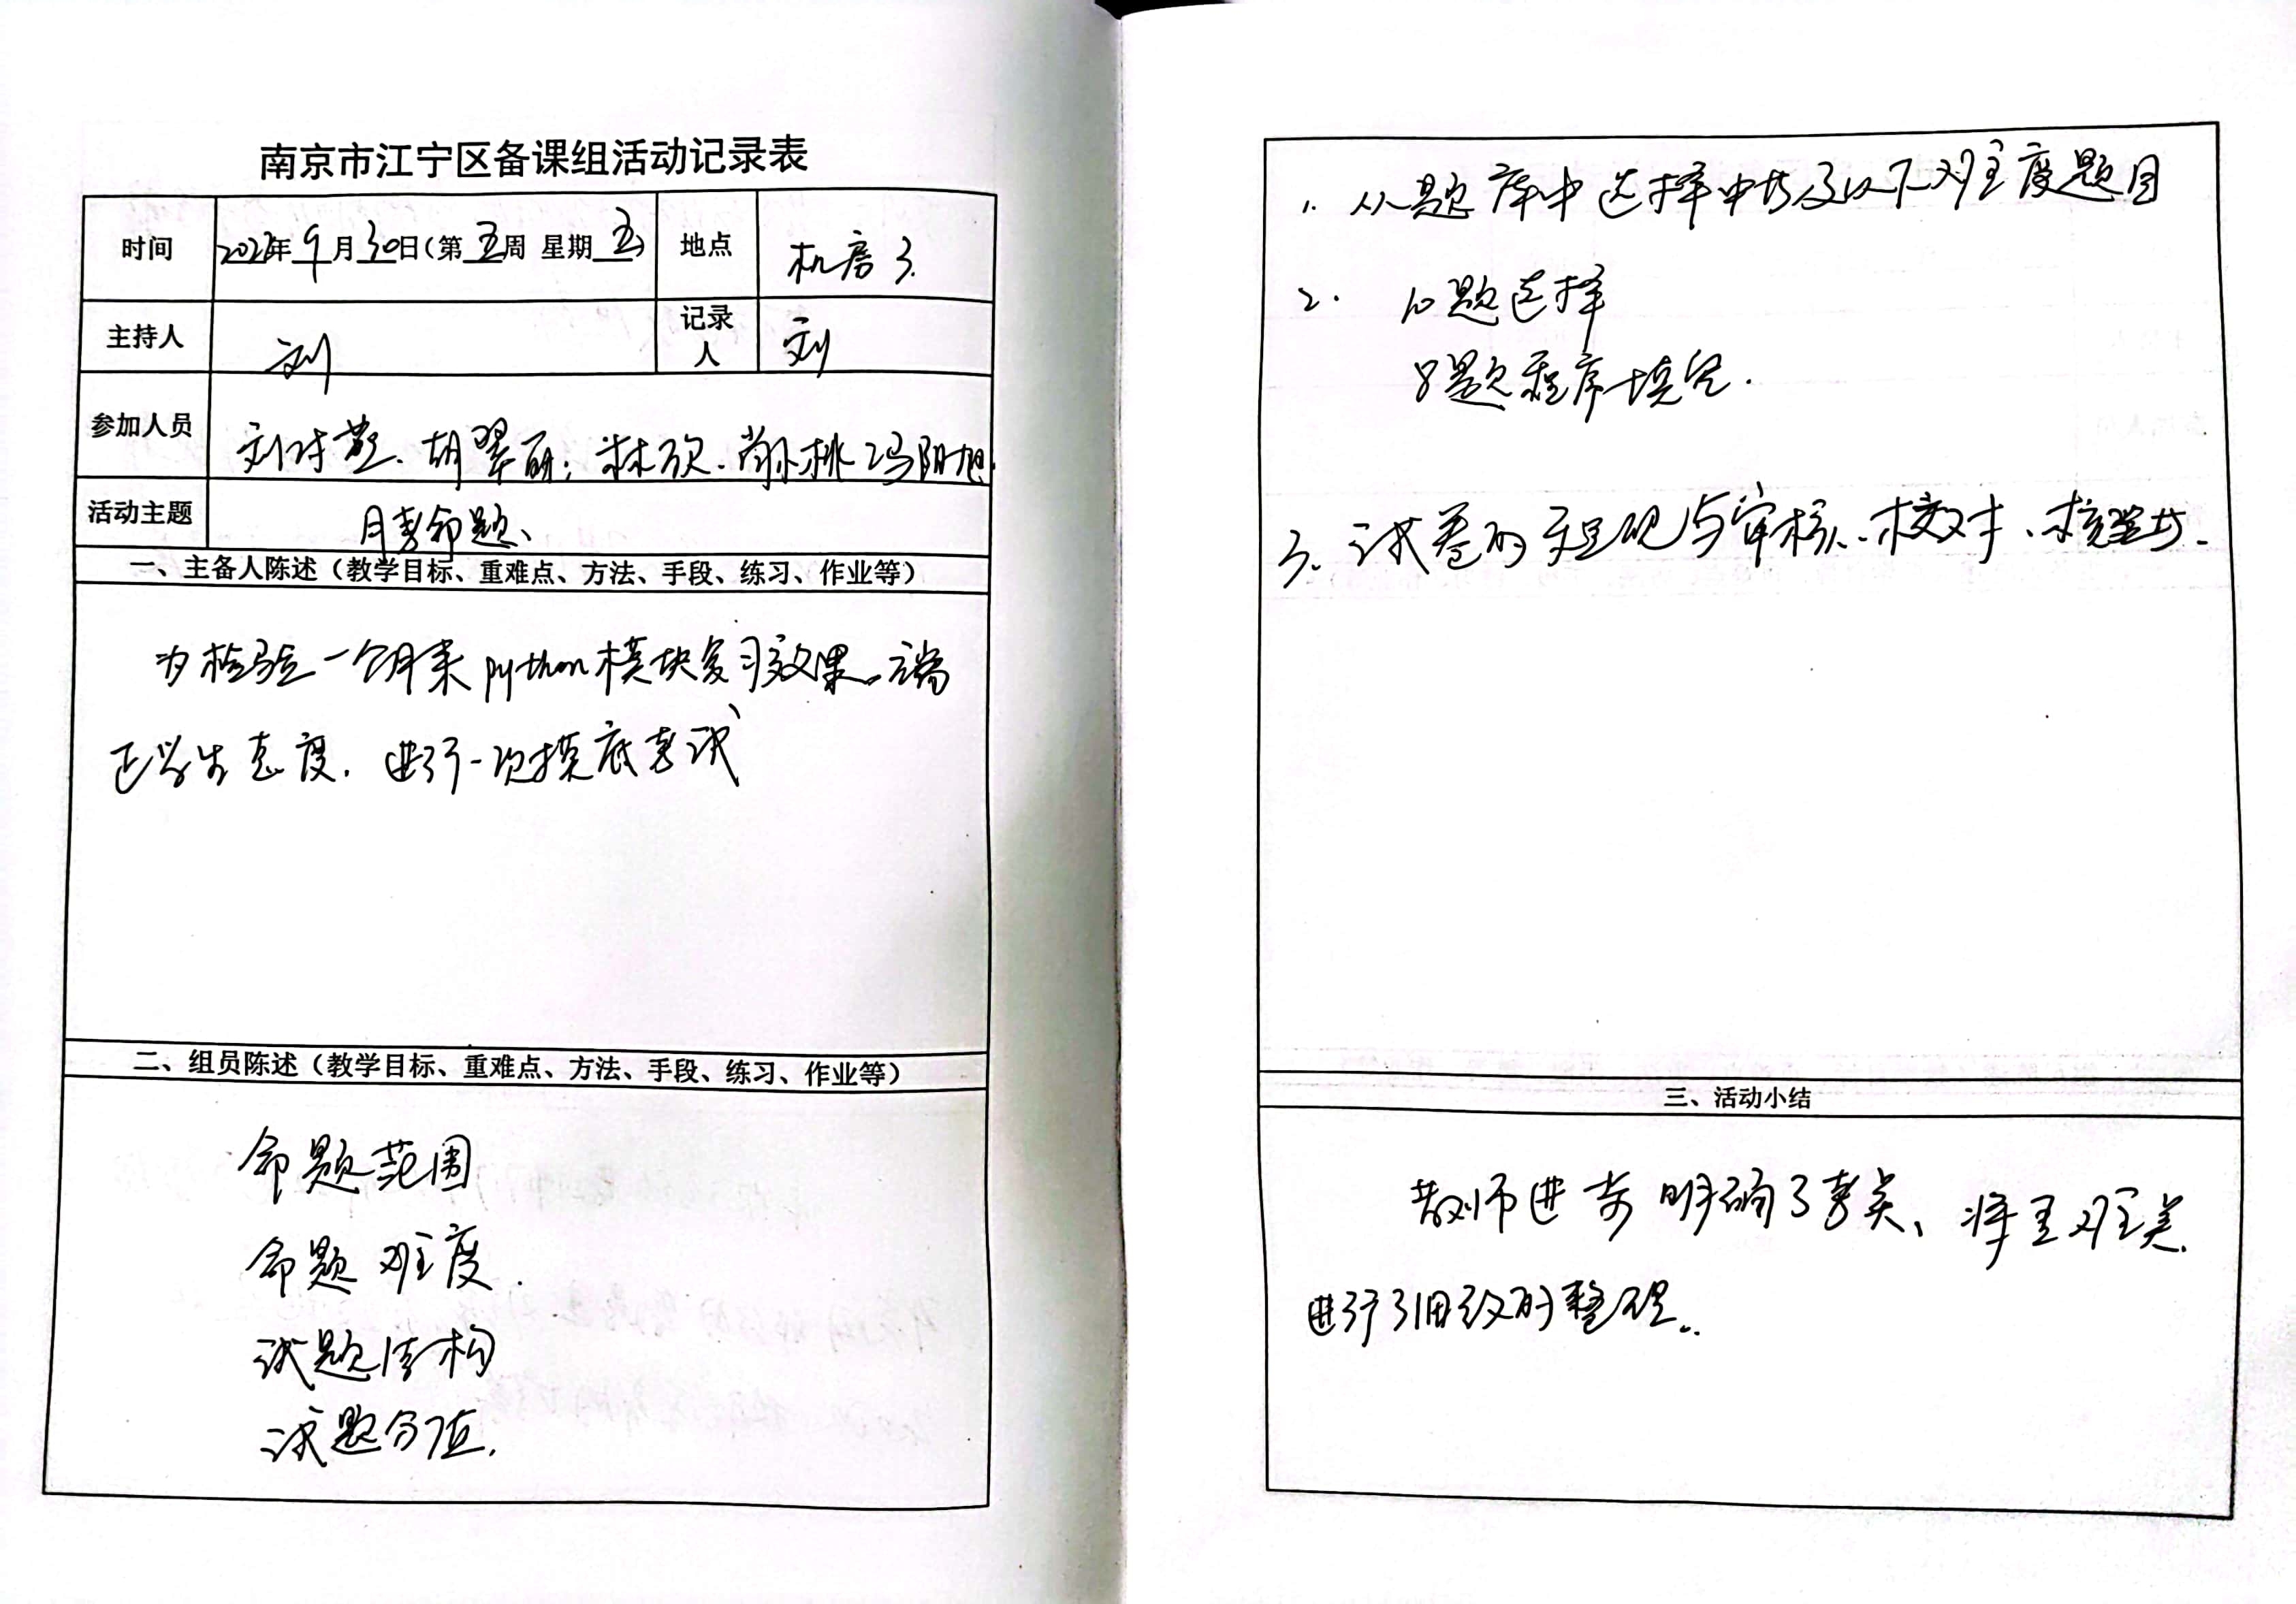 南京市江宁区备课组活动记录表
时间 2022年9月30日(第五周 星期五) 地点 机房3.
主持人 刘 记录人 刘
参加人员 刘诗 胡翠丽; 林欣. 桃 冯阳旭.
活动主题 月考命题、
一、主备人陈述（教学目标、重难点、方法、手段、练习、作业等）
为检验一个月来python模块复习效果。端
正学生态度. 进行一次摸底考试
二、组员陈述（教学目标、重难点、方法、手段、练习、作业等）
命题范围
命题难度.
试题结构
试题分值.
1. 从题库中选择中档及以下难度题目
2. 10题选择
8题程序填空.
3. 试卷的呈现与审核、校对、
三、活动小结
教师进步明确了考点、将重难点
进行了细致的整理..